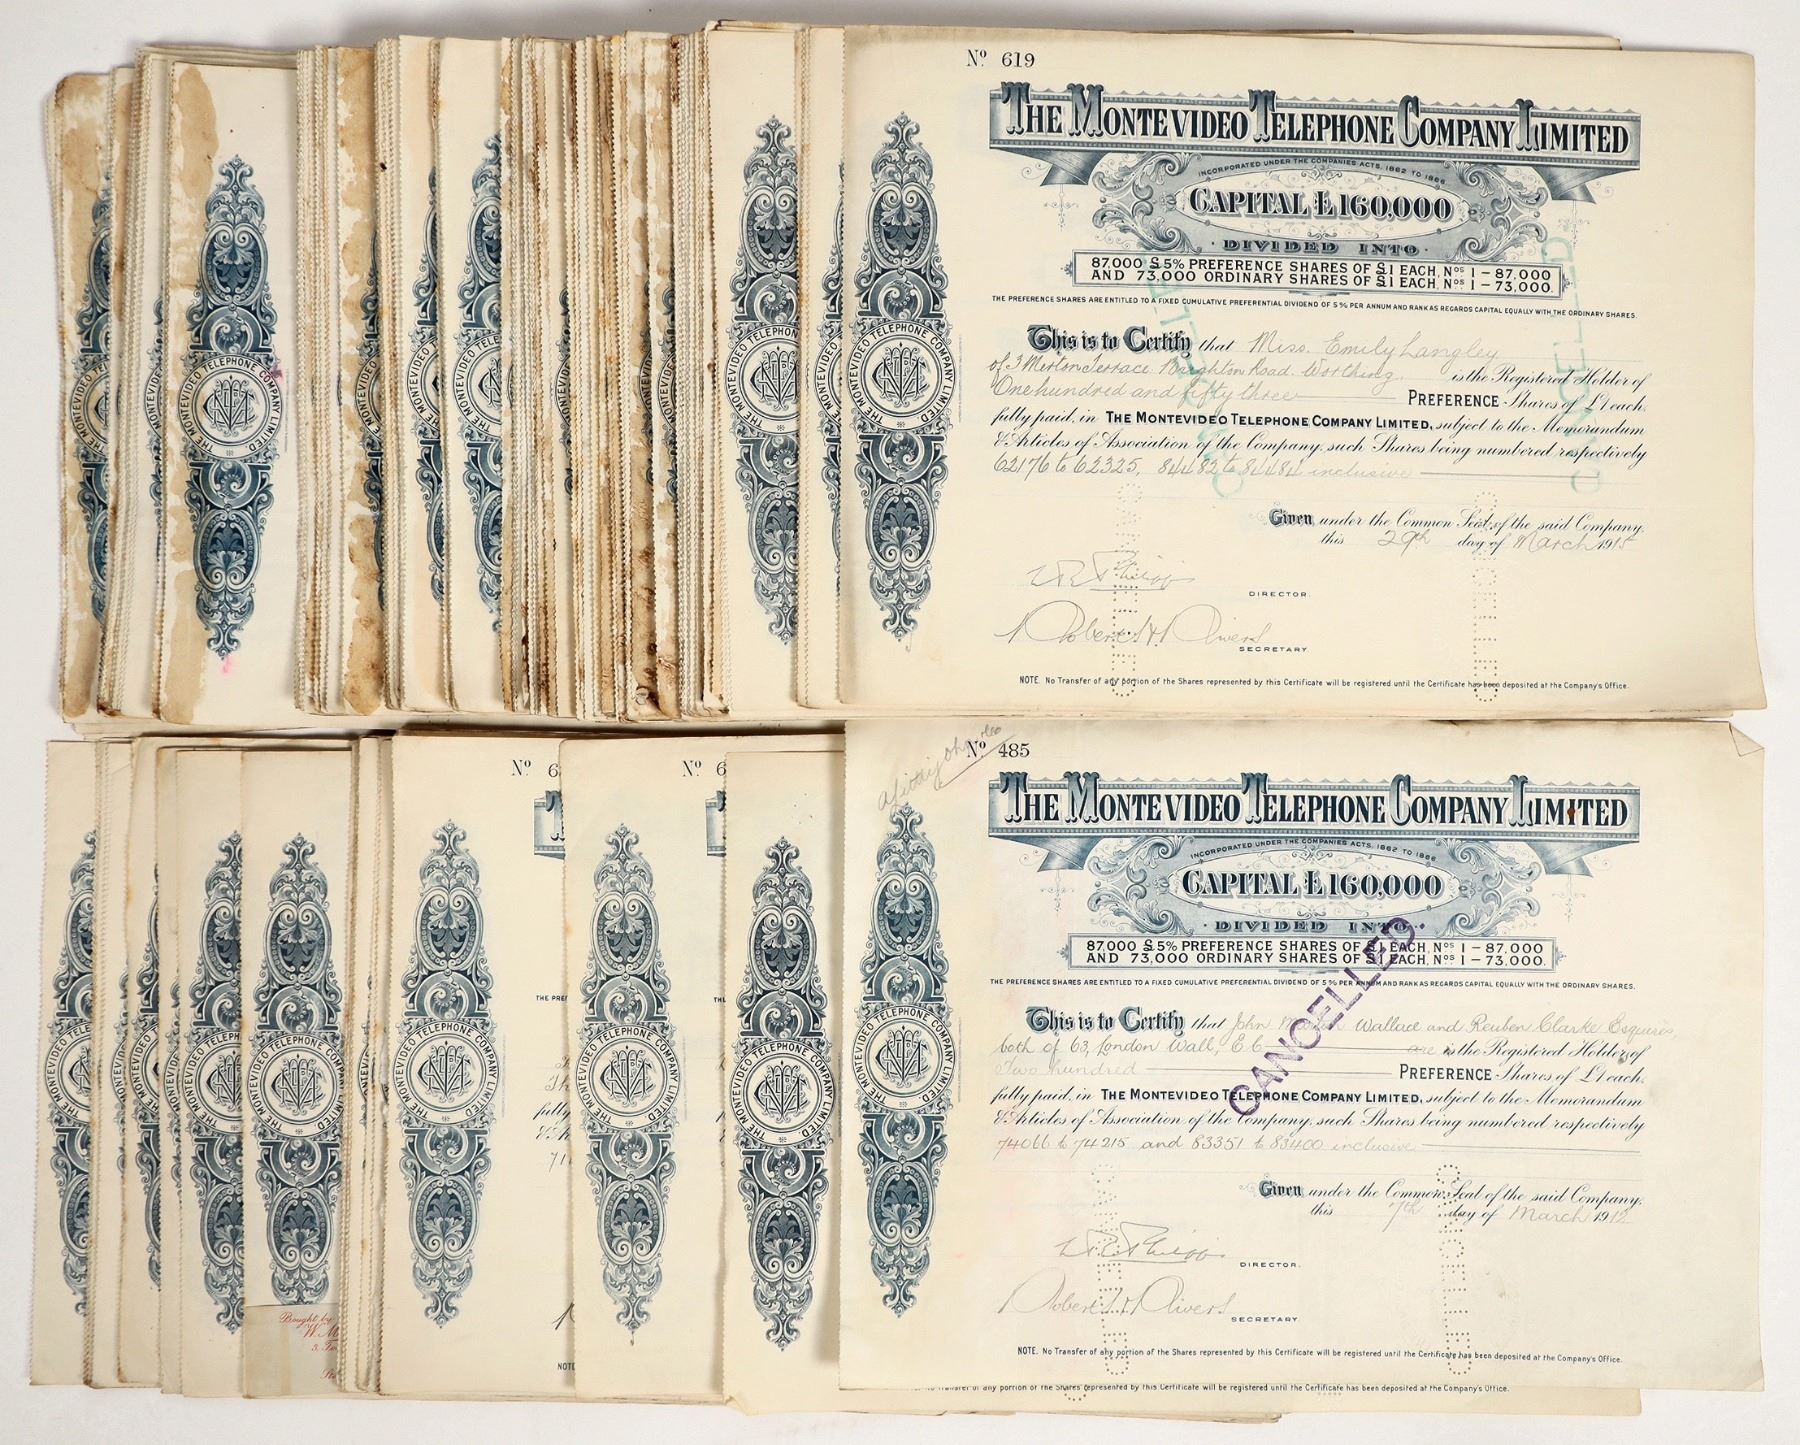 Nº 619
THE MONTEVIDEO TELEPHONE COMPANY LIMITED
INCORPORATED UNDER THE COMPANIES ACTS, 1862 TO 1886
CAPITAL £160,000
· DIVIDED INTO ·
87,000 £5% PREFERENCE SHARES OF £1 EACH, Nos 1 – 87,000
AND 73,000 ORDINARY SHARES OF £1 EACH, Nos 1 – 73,000.
THE PREFERENCE SHARES ARE ENTITLED TO A FIXED CUMULATIVE PREFERENTIAL DIVIDEND OF 5% PER ANNUM AND RANK AS REGARDS CAPITAL EQUALLY WITH THE ORDINARY SHARES.
This is to Certify that Miss. Emily Langley
of 3 Merton Terrace Brighton Road. Worthing is the Registered Holder of
One hundred and fifty three PREFERENCE Shares of £1 each,
fully paid, in THE MONTEVIDEO TELEPHONE COMPANY LIMITED, subject to the Memorandum
& Articles of Association of the Company, such Shares being numbered respectively
62176 to 62325, 84482 to 84484 inclusive
Given under the Common Seal of the said Company,
this 29th day of March 1915
DIRECTOR.
Robert H Rivers
SECRETARY
NOTE. No Transfer of any portion of the Shares represented by this Certificate will be registered until the Certificate has been deposited at the Company's Office.
THE MONTEVIDEO TELEPHONE COMPANY LIMITED
THE MONTEVIDEO TELEPHONE COMPANY LIMITED
Nº 485
THE MONTEVIDEO TELEPHONE COMPANY LIMITED
INCORPORATED UNDER THE COMPANIES ACTS, 1862 TO 1886
CAPITAL £160,000
· DIVIDED INTO ·
87,000 £5% PREFERENCE SHARES OF £1 EACH, Nos 1 – 87,000
AND 73,000 ORDINARY SHARES OF £1 EACH, Nos 1 – 73,000.
THE PREFERENCE SHARES ARE ENTITLED TO A FIXED CUMULATIVE PREFERENTIAL DIVIDEND OF 5% PER ANNUM AND RANK AS REGARDS CAPITAL EQUALLY WITH THE ORDINARY SHARES.
CANCELLED.
This is to Certify that John Wallace and Reuben Clarke Esquires,
both of 63, London Wall, E C are is the Registered Holder of
Two hundred PREFERENCE Shares of £1 each,
fully paid, in THE MONTEVIDEO TELEPHONE COMPANY LIMITED, subject to the Memorandum
& Articles of Association of the Company, such Shares being numbered respectively
74066 to 74215 and 83351 to 83400 inclusive
Given under the Common Seal of the said Company,
this 7th day of March 1912
DIRECTOR.
Robert H Rivers
SECRETARY.
NOTE. No Transfer of any portion of the Shares represented by this Certificate will be registered until the Certificate has been deposited at the Company's Office.
Transfer of any portion of the Shares represented by this Certificate will be registered until the Certificate has been deposited at the Company's Office.
Nº 6
Nº 6
THE MONTEVIDEO TELEPHONE COMPANY LIMITED
THE MONTEVIDEO TELEPHONE COMPANY LIMITED
THE MONTEVIDEO TELEPHONE COMPANY LIMITED
THE MONTEVIDEO TELEPHONE COMPANY LIMITED
THE MONTEVIDEO TELEPHONE COMPANY LIMITED
fully
Bought by